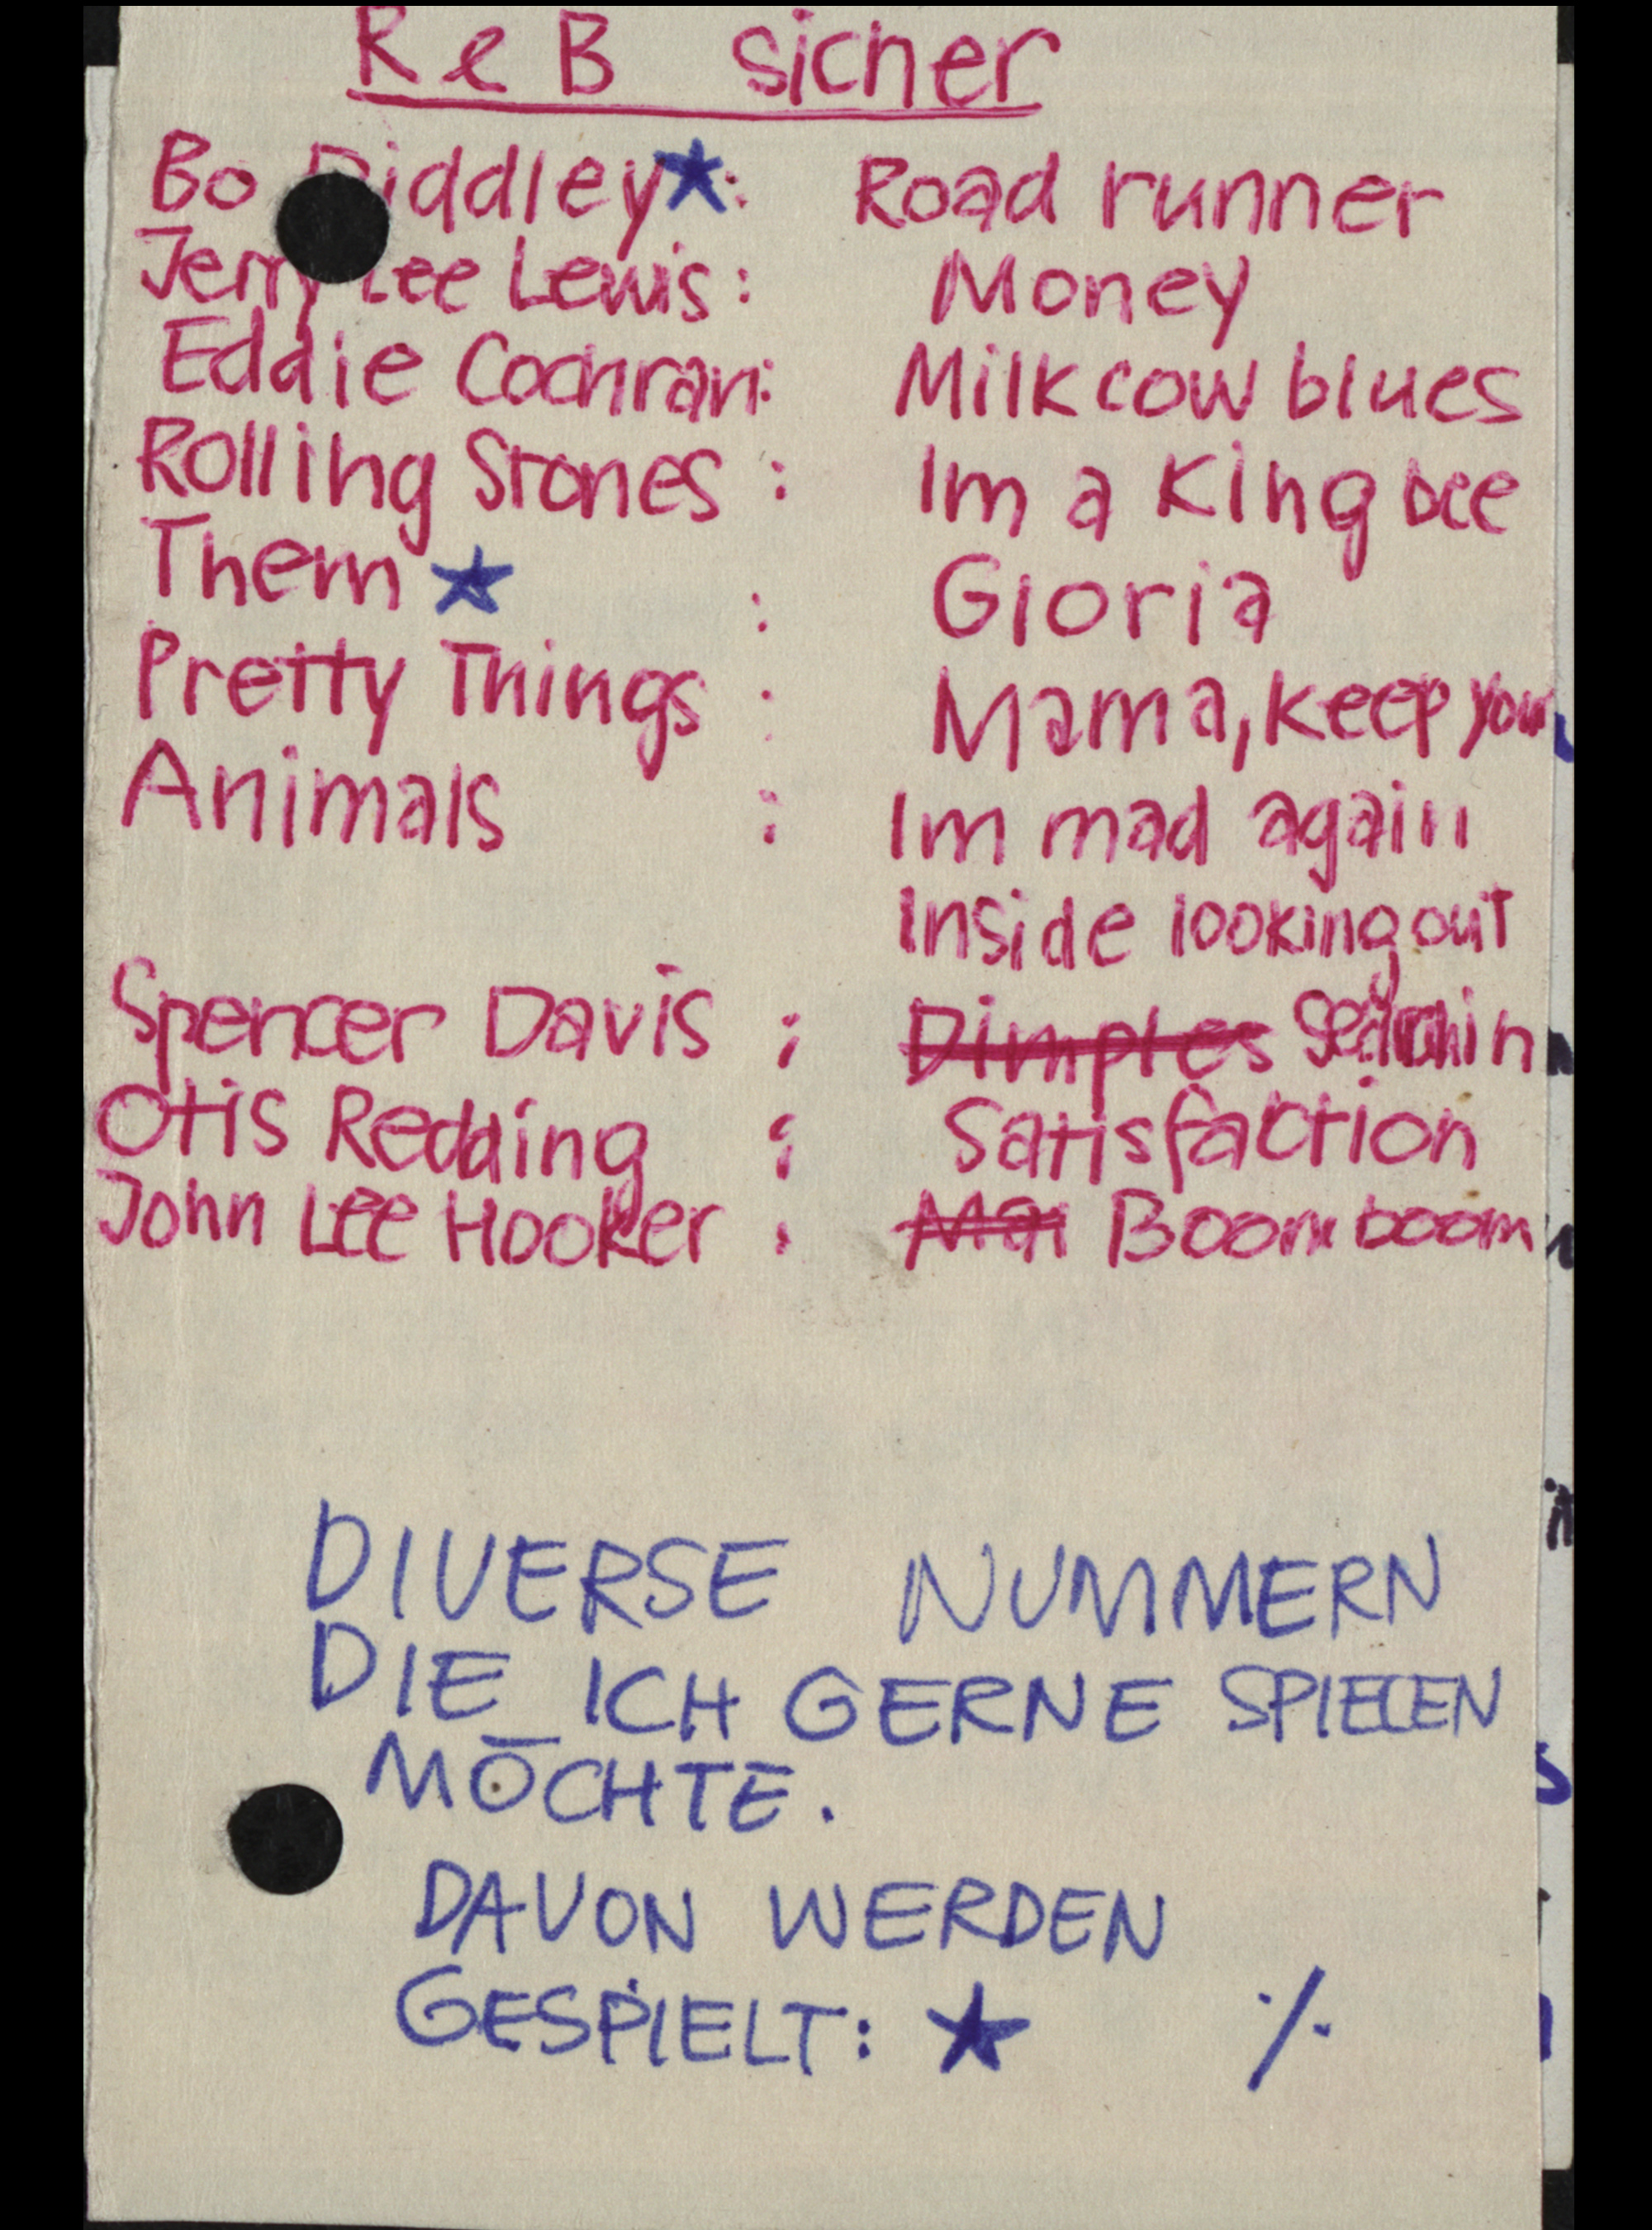 R & B sicher
Bo Diddley★: Road runner
Jerry Lee Lewis: Money
Eddie Cochran: Milkcow blues
Rolling Stones: Im a King bee
Them★: Gloria
Pretty Things: Mama, keep your
Animals: Im mad again
Inside looking out
Spencer Davis: Dimples Searchin
Otis Redding: Satisfaction
John Lee Hooker: Boom boom
DIVERSE NUMMERN
DIE ICH GERNE SPIELEN
MÖCHTE.
DAVON WERDEN
GESPIELT: ★ ./.